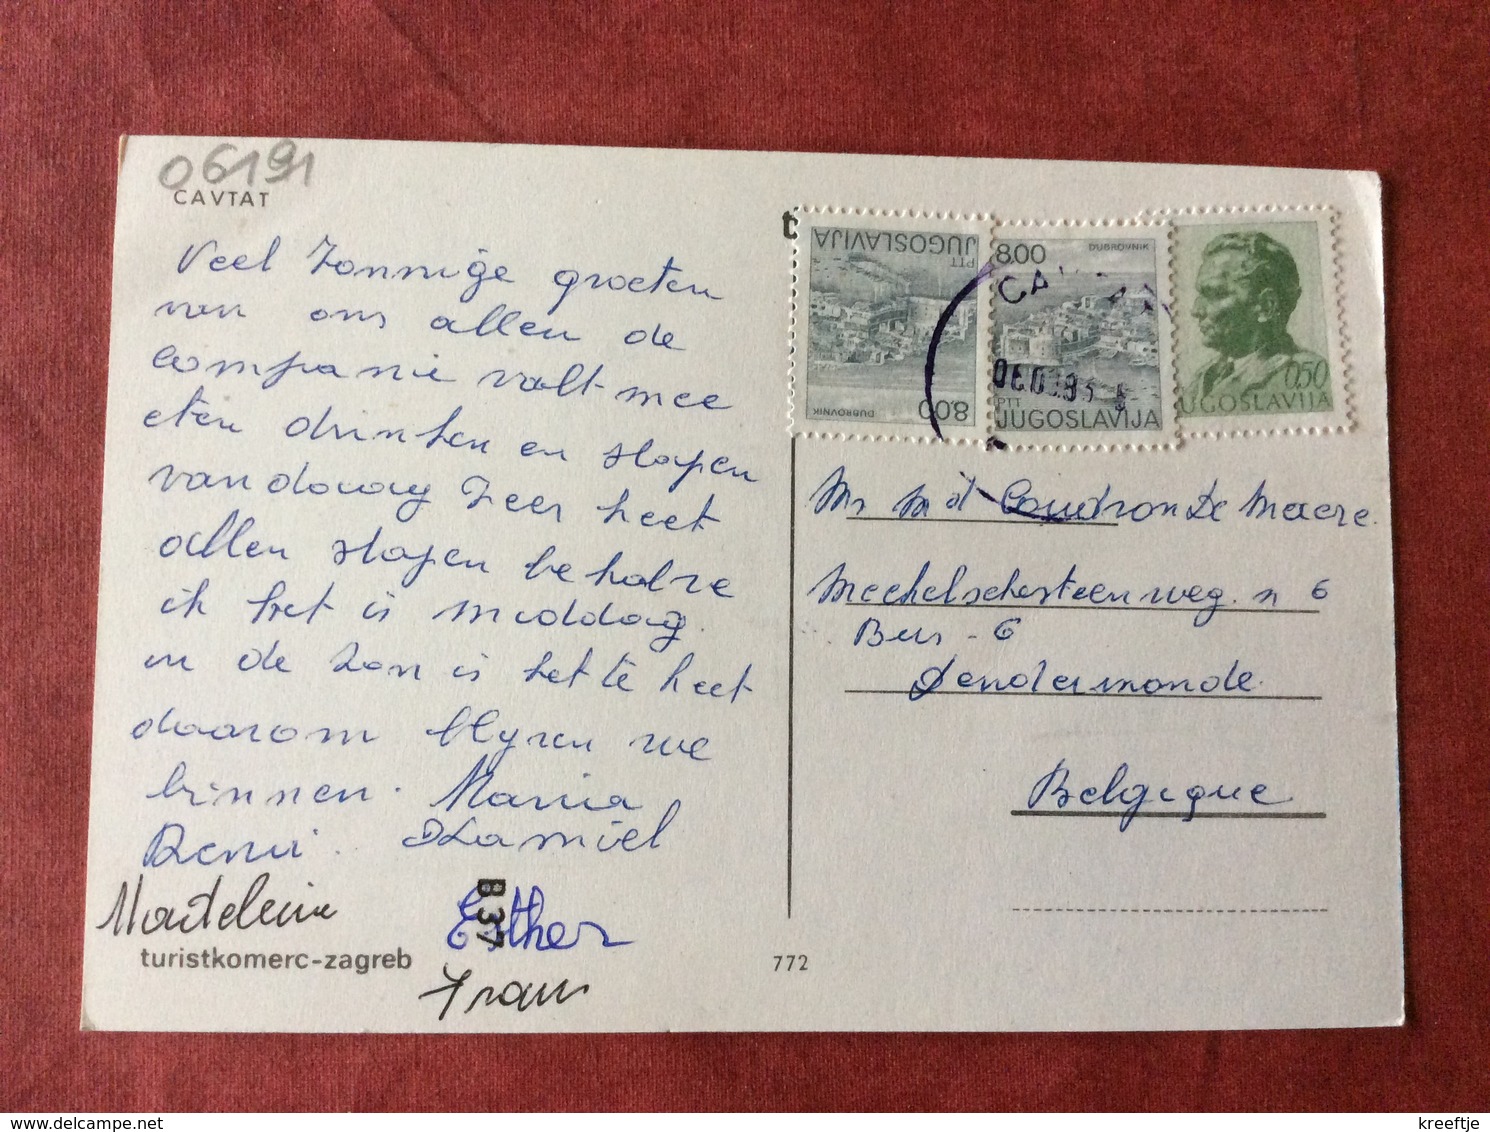 06191
CAVTAT
Veel Zonnige groeten
van ons allen de
Companie valt mee
eten drinken en slapen
vandaag Zeer heet
allen slapen behalve
ik het is middag
in de zon is het te heet
daarom blijven we
binnen. Maria
Kamiel
Madeleine
Esther
B37
turistkomerc-zagreb
Frans
772
JUGOSLAVIJA
PTT
DUBROVNIK
8.00
8.00
DUBROVNIK
PTT
JUGOSLAVIJA
0,50
JUGOSLAVIJA
Mr M d Coudron De Maere.
Mechelsesteenweg. n 6
Bus - 6
Dendermonde.
Belgique
kreeftje